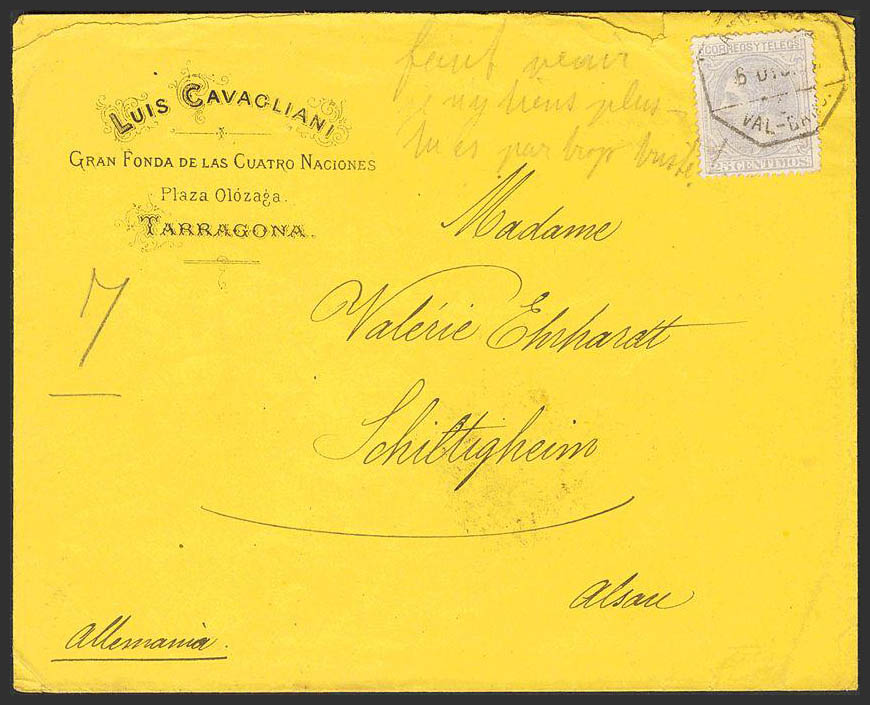 LUIS CAVAGLIANI
GRAN FONDA DE LAS CUATRO NACIONES
Plaza Olózaga.
TARRAGONA.
venir
j'y tiens plus
tu es par trop triste!
CORREOS Y TELEGS
6 DIC
VAL-BARC
25 CENTIMOS
7
Madame
Valérie Ehrhardt
Schiltigheim
Alsace
Allemania.